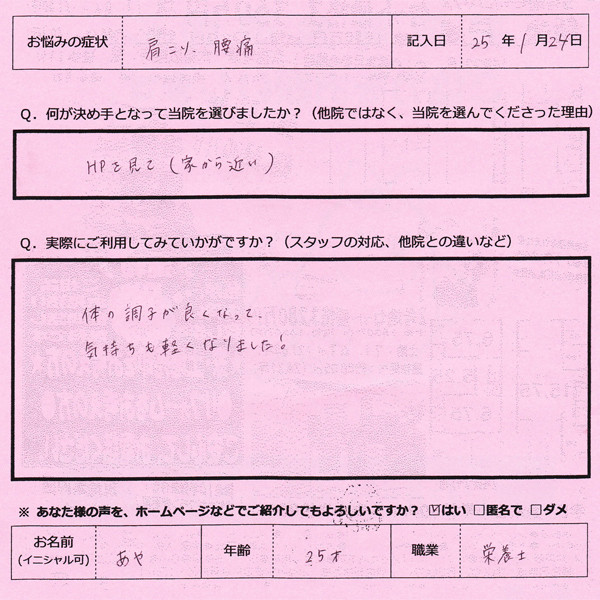 お悩みの症状 肩こり、腰痛 記入日 25年1月24日
Q．何が決め手となって当院を選びましたか？（他院ではなく、当院を選んでくださった理由）
HPを見て（家から近い）
Q．実際にご利用してみていかがですか？（スタッフの対応、他院との違いなど）
体の調子が良くなって、
気持ちも軽くなりました！
※ あなた様の声を、ホームページなどでご紹介してもよろしいですか？ ☑はい □匿名で □ダメ
お名前 あや 年齢 25才 職業 栄養士
(イニシャル可)